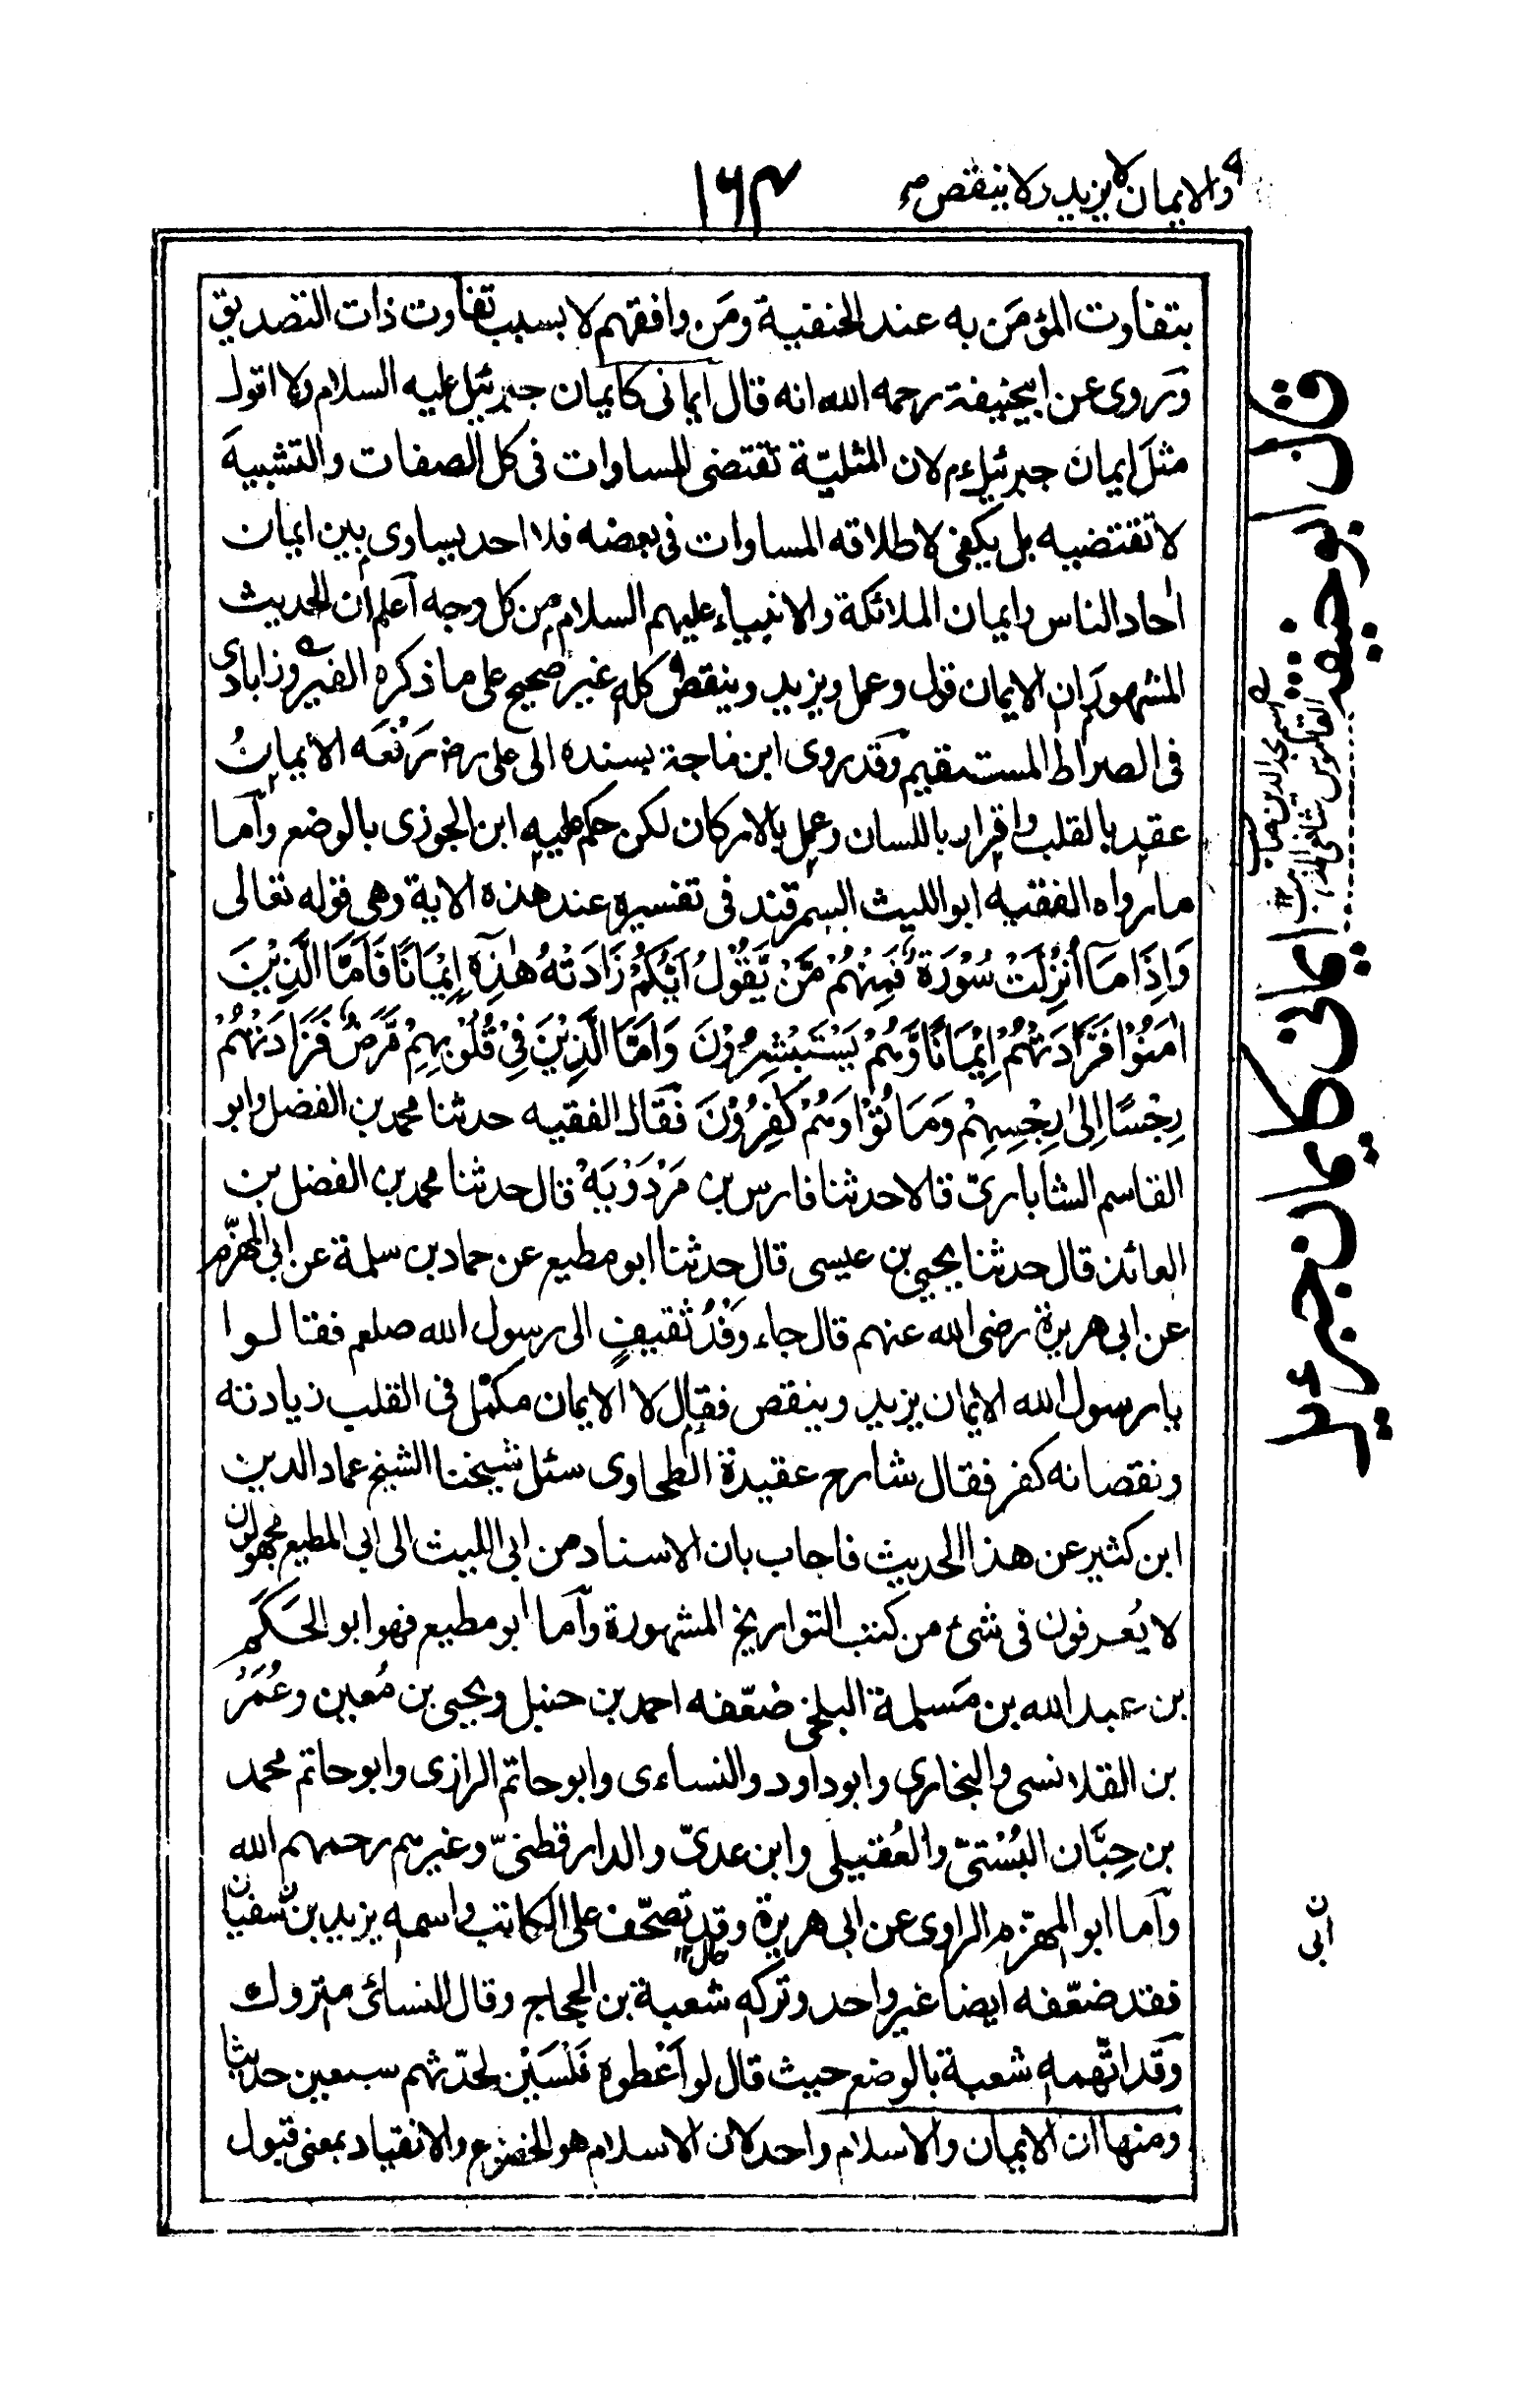 والايمان لا يزيد ولا ينقص
١٦٣
بتفاوت المؤمَن به عند الحنفية ومَن وافقهم لا بسبب تفاوت ذات التصديق
وَروى عن ابيحنيفة رحمه الله انه قال ايمانى كايمان جبرئيل عليه السلام ولا اقول
مثلَ ايمان جبرئيل ءم لان المثليّة تقتضى المساوات فى كل الصفات والتشبيهَ
لا تقتضيه بل يكفى لاطلاقه المساوات فى بعضه فلا احد يساوى بين ايمان
اٰحاد الناس وايمان الملائكة والانبياء عليهم السلام من كل وجه آعلم ان الحديث
المشهور ان الايمان قول وعمل ويزيد وينقص كله غير صحيح على ما ذكره الفيروزابادى
فى الصراط المستقيم وَقد روى ابن ماجة بسنده الى على رض رَفْعَه الايمانُ
عقد بالقلب واقرار باللسان وعمل بالاركان لكن حكم عليه ابن الجوزى بالوضع وآما
ما رواه الفقيه ابو الليث السمرقند فى تفسيره عند هذه الاية وهى قوله تعالى
وَاِذَا مَآ اُنْزِلَتْ سُوْرَةٌ فَمِنْهُمْ مَّنْ يَّقُوْلُ اَيُّكُمْ زَادَتْهُ هٰذِهٖٓ اِيْمَانًا فَاَمَّا الَّذِيْنَ
اٰمَنُوْا فَزَادَتْهُمْ اِيْمَانًا وَّهُمْ يَسْتَبْشِرُوْنَ وَاَمَّا الَّذِيْنَ فِيْ قُلُوْبِهِمْ مَّرَضٌ فَزَادَتْهُمْ
رِجْسًا اِلىٰ رِجْسِهِمْ وَمَاتُوْا وَهُمْ كٰفِرُوْنَ فَقال الفقيه حدثنا محمد بن الفضل وابو
القاسم الشاباريّ قالا حدثنا فارس بن مَرْدَوَيَهْ قال حدثنا محمد بن الفضل بن
العائذ قال حدثنا يحيى بن عيسى قال حدثنا ابو مطيع عن حماد بن سلمة عن ابى المهزّم
عن ابى هريرة رضى الله عنهم قال جاء وَفْدُ ثقيفٍ الى رسول الله صلعم فقالوا
يا رسول الله الايمان يزيد وينقص فقال لا الايمان مكمّل فى القلب زيادته
ونقصانه كفر فقال شارح عقيدة الطحاوى سئل شيخنا الشيخ عماد الدين
ابن كثير عن هذا الحديث فاجاب بان الاسناد من ابى الليث الى ابى المطيع مجهولون
لا يُعرفون فى شئ من كتب التواريخ المشهورة وآما ابو مطيع فهو ابو الحَكَم
بن عبد الله بن مَسلمة البلخى ضعّفه احمد بن حنبل ويحيى بن مُعين وعُمَرُ
بن القلانسى والبخارى وابو داود والنساءى وابو حاتم الرازى وابو حاتم محمد
بن حِبَّان البُسْتىّ والعُقيلى وابن عدىّ والدارقطنىّ وغيرهم رحمهم الله
وآما ابو المهزّم الراوى عن ابى هريرة وقد تصحّف على الكاتب واسمه يزيد بن سفيان
فقد ضعّفه ايضا غير واحد وتركه شعبة بن الحجاج وقال النسائى متروك
وَقد اتّهمه شعبة بالوضع حيث قال لو اَعْطوه فَلْسَيْن لحدّثهم سبعين حديثا
ومنها ان الايمان والاسلام واحد لان الاسلام هو الخضوع والانقياد بمعنى قبول
قال ابو حنيفه ايمانى كايمان جبرئيل
اسم مجد الدين صاحب
القاموس شافعى المذهب